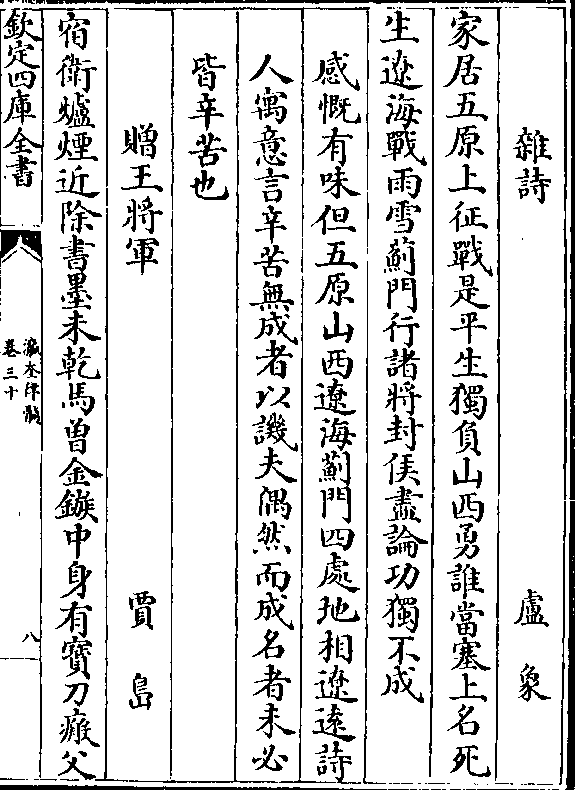 雜詩　盧象
家居五原上征戰是平生獨負山西勇誰當塞上名死
生遼海戰雨雪薊門行諸將封侯盡論功獨不成
感慨有味但五原山西遼海薊門四處地相遼逺詩
人寓意言辛苦無成者以譏夫偶然而成名者未必
皆辛苦也
贈王將軍　賈島
宿衛爐煙近除書墨未乾馬曾金鏃中身有寳刀瘢父
欽定四庫全書
瀛奎律髓
卷三十
八